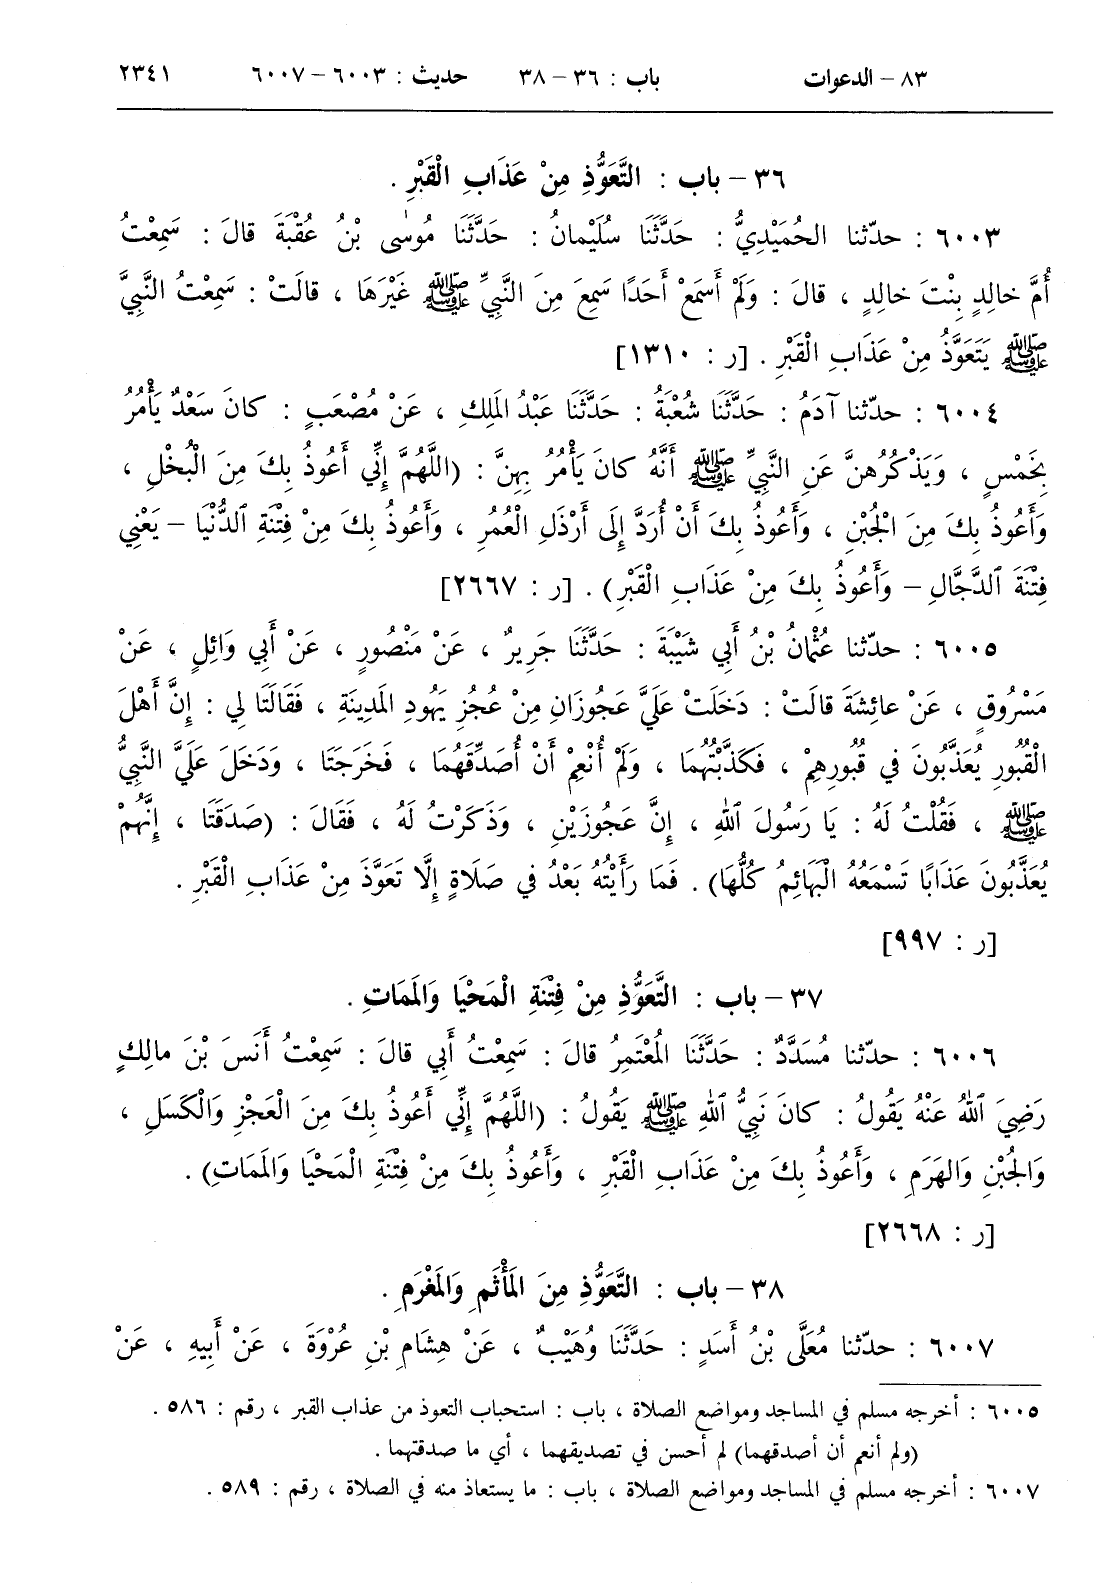 ٨٣ – الدعوات باب : ٣٦ – ٣٨ حديث : ٦٠٠٣ – ٦٠٠٧ ٢٣٤١
٣٦ – باب : التَّعَوُّذِ مِنْ عَذَابِ الْقَبْرِ .
٦٠٠٣ : حدّثنا الحُمَيْدِيُّ : حَدَّثَنَا سُلَيْمانُ : حَدَّثَنَا مُوسٰى بْنُ عُقْبَةَ قالَ : سَمِعْتُ
أُمَّ خالِدٍ بِنْتَ خالِدٍ ، قالَ : وَلَمْ أَسمَعْ أَحَدًا سَمِعَ مِنَ النَّبِيِّ ﷺ غَيْرَهَا ، قالَتْ : سَمِعْتُ النَّبِيَّ
ﷺ يَتَعَوَّذُ مِنْ عَذَابِ الْقَبْرِ . [ر : ١٣١٠]
٦٠٠٤ : حدّثنا آدَمُ : حَدَّثَنَا شُعْبَةُ : حَدَّثَنَا عَبْدُ المَلِكِ ، عَنْ مُصْعَبٍ : كانَ سَعْدٌ يَأْمُرُ
بِخَمْسٍ ، وَيَذْكُرُهُنَّ عَنِ النَّبِيِّ ﷺ أَنَّهُ كانَ يَأْمُرُ بِهِنَّ : (اللَّهُمَّ إِنِّي أَعُوذُ بِكَ مِنَ الْبُخْلِ ،
وَأَعُوذُ بِكَ مِنَ الْجُبْنِ ، وَأَعُوذُ بِكَ أَنْ أُرَدَّ إِلَى أَرْذَلِ الْعُمُرِ ، وَأَعُوذُ بِكَ مِنْ فِتْنَةِ ٱلدُّنْيَا – يَعْنِي
فِتْنَةَ ٱلدَّجَّالِ – وَأَعُوذُ بِكَ مِنْ عَذَابِ الْقَبْرِ) . [ر : ٢٦٦٧]
٦٠٠٥ : حدّثنا عُثْمانُ بْنُ أَبِي شَيْبَةَ : حَدَّثَنَا جَرِيرٌ ، عَنْ مَنْصُورٍ ، عَنْ أَبِي وَائِلٍ ، عَنْ
مَسْرُوقٍ ، عَنْ عائِشَةَ قالَتْ : دَخَلَتْ عَلَيَّ عَجُوزَانِ مِنْ عُجُزِ يَهُودِ المَدِينَةِ ، فَقَالَتَا لِي : إِنَّ أَهْلَ
الْقُبُورِ يُعَذَّبُونَ في قُبُورِهِمْ ، فَكَذَّبْتُهُمَا ، وَلَمْ أُنْعِمْ أَنْ أُصَدِّقَهُمَا ، فَخَرَجَتَا ، وَدَخَلَ عَلَيَّ النَّبِيُّ
ﷺ ، فَقُلْتُ لَهُ : يَا رَسُولَ ٱللهِ ، إِنَّ عَجُوزَيْنِ ، وَذَكَرْتُ لَهُ ، فَقَالَ : (صَدَقَتَا ، إِنَّهُمْ
يُعَذَّبُونَ عَذَابًا تَسْمَعُهُ الْبَهَائِمُ كُلُّهَا) . فَمَا رَأَيْتُهُ بَعْدُ في صَلَاةٍ إِلَّا تَعَوَّذَ مِنْ عَذَابِ الْقَبْرِ .
[ر : ٩٩٧]
٣٧ – باب : التَّعَوُّذِ مِنْ فِتْنَةِ الْمَحْيَا وَالمَمَاتِ .
٦٠٠٦ : حدّثنا مُسَدَّدٌ : حَدَّثَنَا المُعْتَمِرُ قالَ : سَمِعْتُ أَبِي قالَ : سَمِعْتُ أَنَسَ بْنَ مالِكٍ
رَضِيَ ٱللهُ عَنْهُ يَقُولُ : كانَ نَبِيُّ ٱللهِ ﷺ يَقُولُ : (اللَّهُمَّ إِنِّي أَعُوذُ بِكَ مِنَ الْعَجْزِ وَالْكَسَلِ ،
وَالجُبْنِ وَالهَرَمِ ، وَأَعُوذُ بِكَ مِنْ عَذَابِ الْقَبْرِ ، وَأَعُوذُ بِكَ مِنْ فِتْنَةِ الْمَحْيَا وَالمَمَاتِ) .
[ر : ٢٦٦٨]
٣٨ – باب : التَّعَوُّذِ مِنَ المَأْثَمِ وَالمَغْرَمِ .
٦٠٠٧ : حدّثنا مُعَلَّى بْنُ أَسَدٍ : حَدَّثَنَا وُهَيْبٌ ، عَنْ هِشَامِ بْنِ عُرْوَةَ ، عَنْ أَبِيهِ ، عَنْ
٦٠٠٥ : أخرجه مسلم في المساجد ومواضع الصلاة ، باب : استحباب التعوذ من عذاب القبر ، رقم : ٥٨٦ .
(ولم أنعم أن أصدقهما) لم أحسن في تصديقهما ، أي ما صدقتهما .
٦٠٠٧ : أخرجه مسلم في المساجد ومواضع الصلاة ، باب : ما يستعاذ منه في الصلاة ، رقم : ٥٨٩ .